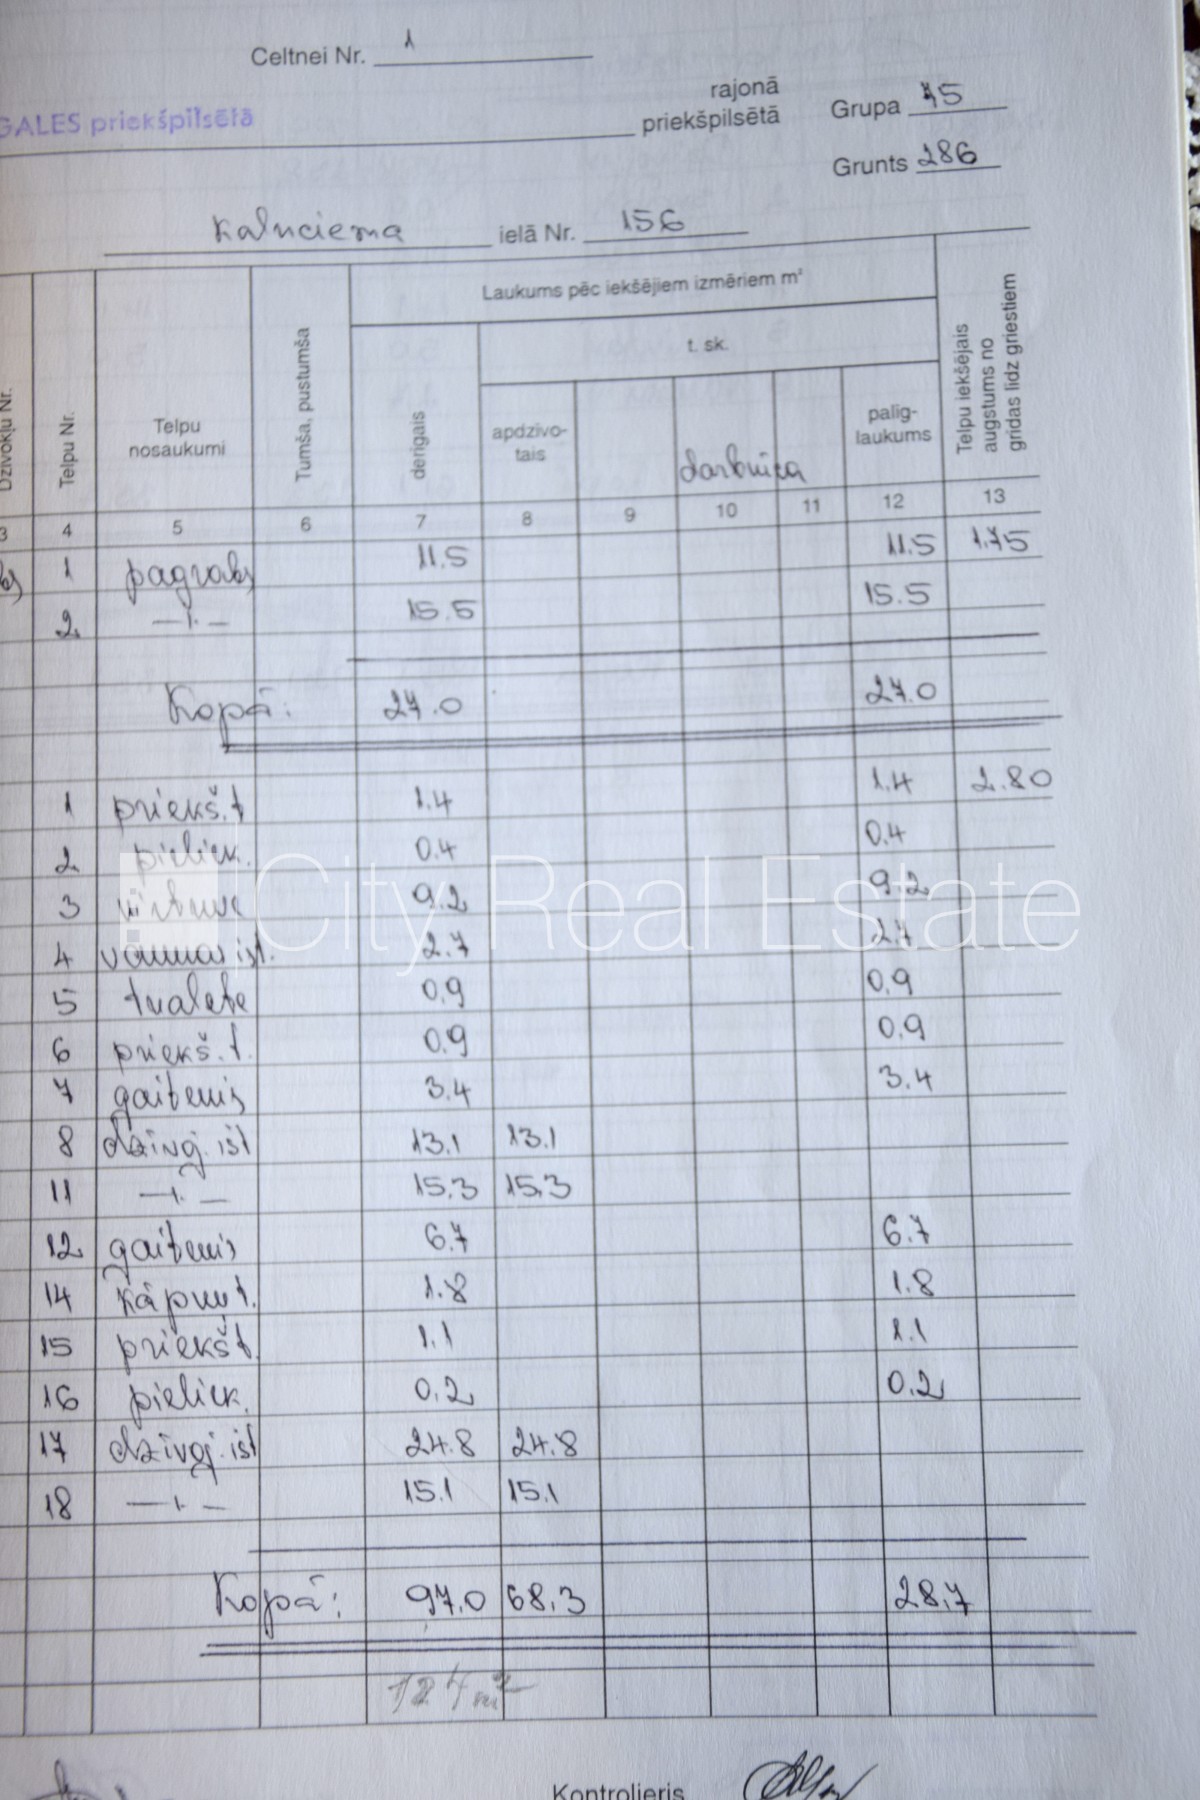 Celtnei Nr. 1
GALES priekšpilsētā
rajonā
priekšpilsētā
Grupa 75
Grunts 286
Kalnciema ielā Nr. 156
Laukums pēc iekšējiem izmēriem m²
t. sk.
Dzīvokļu Nr.
Telpu Nr.
Telpu nosaukumi
Tumša, pustumša
derīgais
apdzīvo-
tais
darbnīca
palīg-
laukums
Telpu iekšējais
augstums no
grīdas līdz griestiem
3 4 5 6 7 8 9 10 11 12 13
1 pagrabs 11.5 11.5 1.75
2 —"— 15.5 15.5
Kopā: 27.0 27.0
1 priekš.t 1.4 1.4 2.80
2 pieliek. 0.4 0.4
3 virtuve 9.2 9.2
4 vannas ist. 2.7 2.7
5 tualete 0,9 0,9
6 priekš.t. 0.9 0.9
7 gaitenis 3.4 3.4
8 dzīvoj. ist 13.1 13.1
11 —"— 15.3 15.3
12 gaitenis 6.7 6.7
14 kāpņu t. 1.8 1.8
15 priekšt. 1.1 1.1
16 pieliek. 0.2 0.2
17 dzīvoj. ist 24.8 24.8
18 —"— 15.1 15.1
Kopā: 97.0 68.3 28.7
124 m²
Kontrolieris
City Real Estate